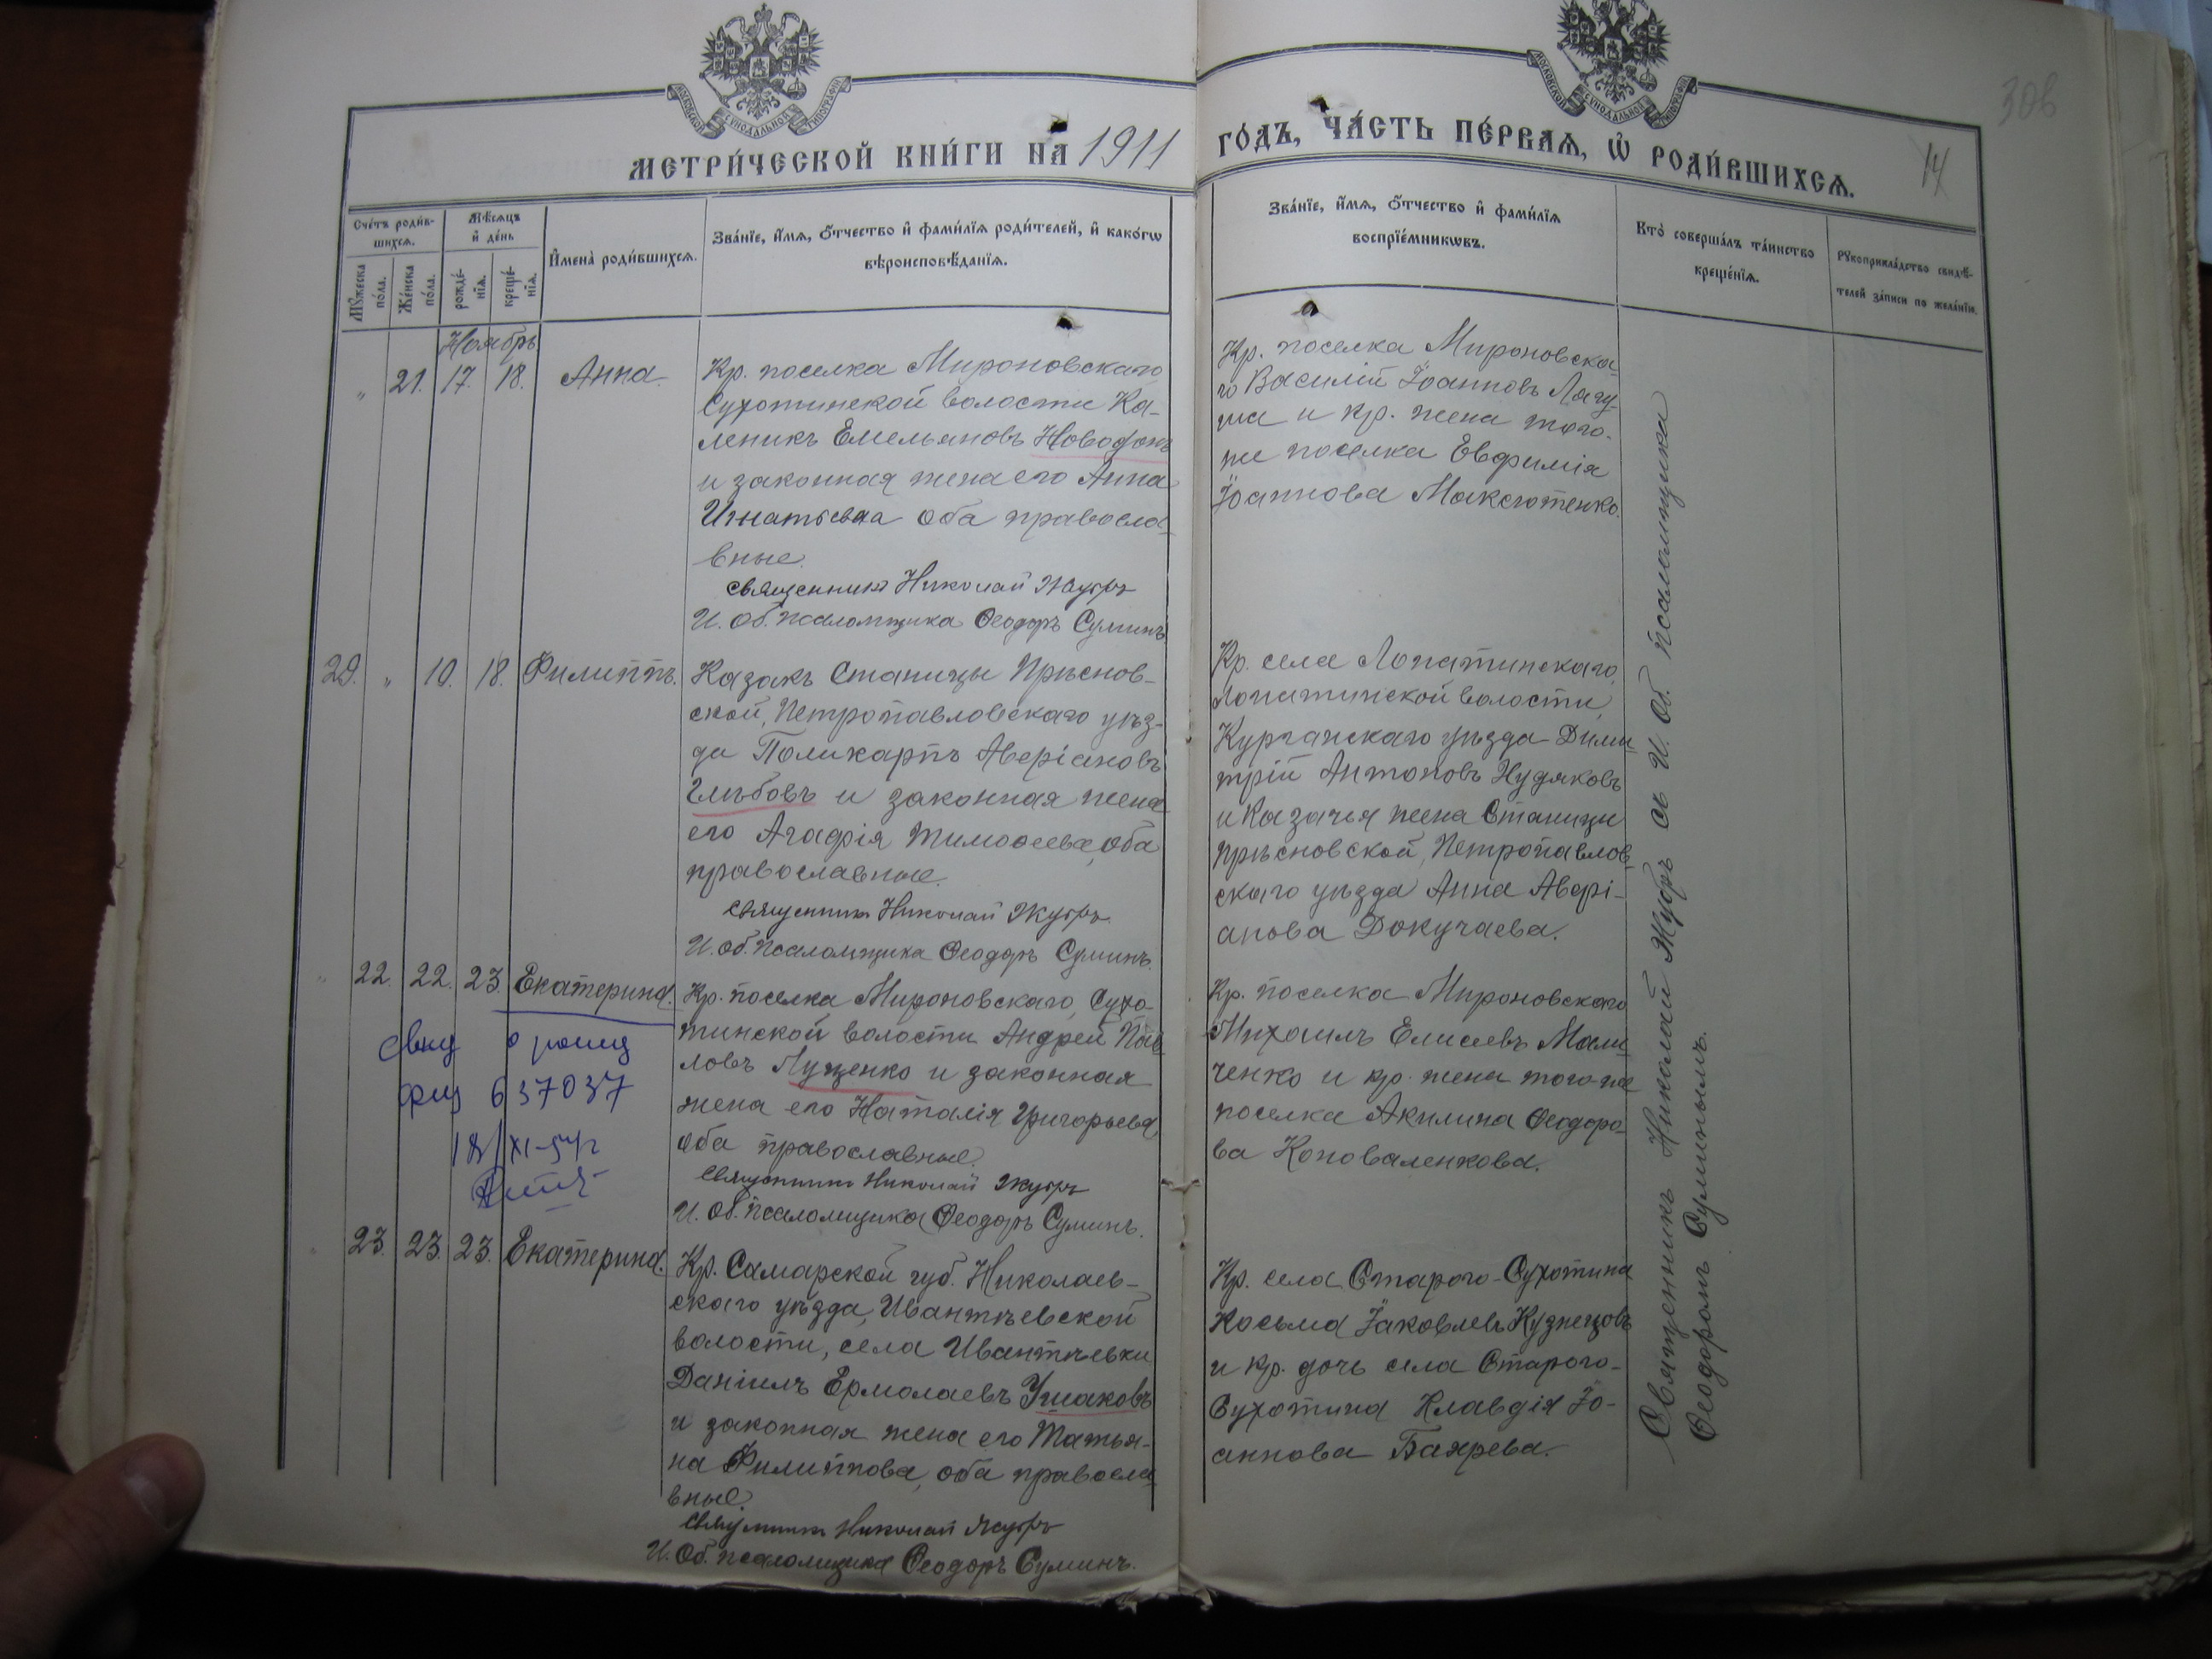 МОСКОВСКОЙ СУНОДАЛЬНОЙ ТИПОГРАФІИ
МОСКОВСКОЙ СУНОДАЛЬНОЙ ТИПОГРАФІИ
306
МЕТРИ́ЧЕСКОЙ КНИ́ГИ НА 1911
ГО́ДЪ, ЧА́СТЬ ПЕ́РВАѦ, Ѡ҆ РОДИ́ВШИХСѦ.
14
Сче́тъ роди́в-
шихсѧ.
Мꙋ́жеска по́ла.
Же́нска по́ла.
Мѣ́сѧцъ и҆ де́нь
рожде́-
нїѧ.
креще́-
нїѧ.
И҆мена̀ роди́вшихсѧ.
Зва́нїе, и҆́мѧ, ѻ҆́тчество и҆ фами́лїѧ роди́телей, и҆ како́гѡ
вѣроисповѣ́данїѧ.
Зва́нїе, и҆́мѧ, ѻ҆́тчество и҆ фами́лїѧ
воспрїе́мникѡвъ.
Кто̀ соверша́лъ та́инство
креще́нїѧ.
Рꙋкоприкла́дство свидѣ́-
телей за́писи по жела́нїю.
Ноябрь
" 21. 17. 18. Анна.
Кр. поселка Мироновскаго
Сухотинской волости Ка-
леникъ Емельяновъ Новофонъ
и законная жена его Анна
Игнатьевна оба правосла-
вные.
Священникъ Николай Жугръ
И. Об. псаломщика Ѳеодоръ Суминъ
Кр. поселка Мироновска-
го Василій Іоанновъ Лагу-
ша и кр. жена того-
же поселка Евфимія
Іоаннова Максютенко.
29. " 10. 18. Филиппъ.
Казакъ Станицы Прѣснов-
ской, Петропавловскаго уѣз-
да Поликарпъ Аверіановъ
Глѣбовъ и законная жена
его Агафія Тимоѳеева, оба
православные.
Священникъ Николай Жугръ
И. Об. псаломщика Ѳеодоръ Суминъ.
Кр. села Лопатинскаго,
Лопатинской волости,
Курганскаго уѣзда Дими-
трій Антоновъ Худяковъ
и Казачья жена Станицы
Прѣсновской, Петропавлов-
скаго уѣзда Анна Авері-
анова Докучаева.
" 22. 22. 23. Екатерина.
Кр. поселка Мироновскаго, Сухо-
тинской волости Андрей Пав-
ловъ Луценко и законная
жена его Наталія Григорьева,
оба православные.
Священникъ Николай Жугръ
И. Об. псаломщика Ѳеодоръ Суминъ.
о
637037
18/XI-54г
Кр. поселка Мироновскаго
Михаилъ Елисеевъ Мали-
ченко и кр. жена того-же
поселка Акилина Ѳеодоро-
ва Коноваленкова.
" 23. 23. 23. Екатерина.
Кр. Самарской губ. Николаев-
скаго уѣзда, Ивантѣевской
волости, села Ивантѣевки
Даніилъ Ермолаевъ Ушаковъ
и законная жена его Татья-
на Филиппова, оба правосла-
вные.
Священникъ Николай Жугръ
И. Об. псаломщика Ѳеодоръ Суминъ.
Кр. села Старого-Сухотина
Косьма Іаковлевъ Кузнецовъ
и кр. дочь села Старого-
Сухотина Клавдія Іо-
аннова Баярева.
Священникъ Николай Жугръ съ И. Об. псаломщика
Ѳеодоромъ Суминымъ.